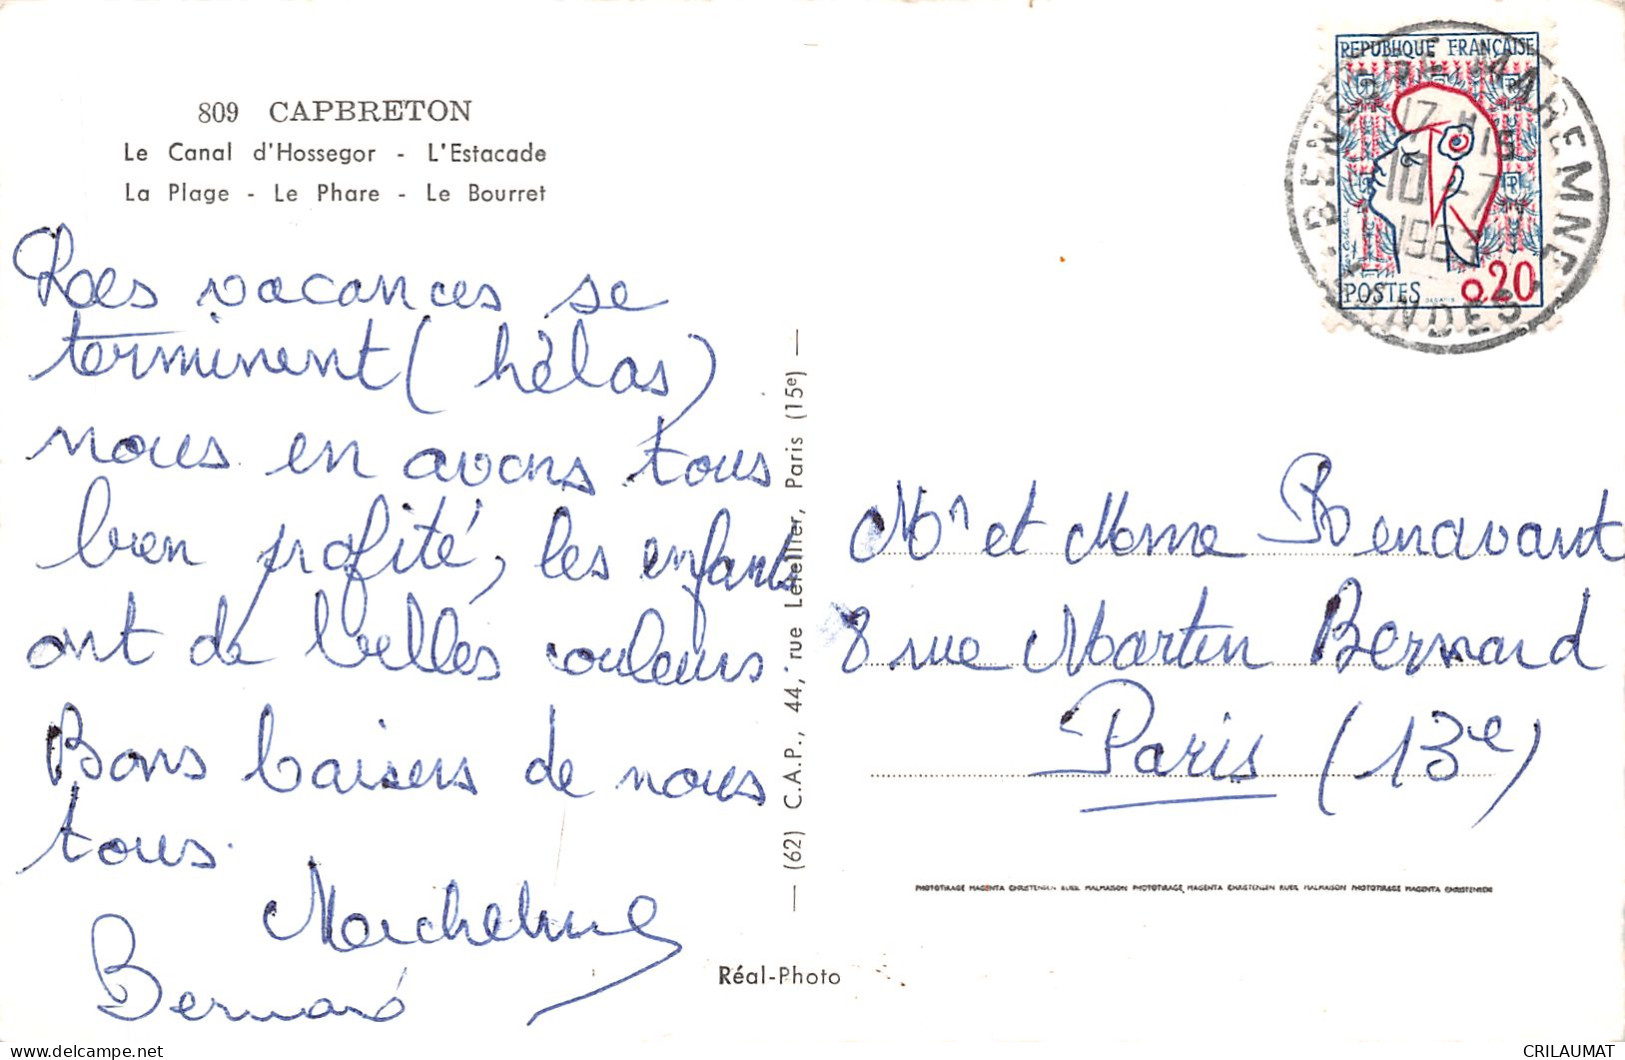 809 CAPBRETON
Le Canal d'Hossegor - L'Estacade
La Plage - Le Phare - Le Bourret
Les vacances se
terminent (hélas)
nous en avons tous
bien profité, les enfants
ont de belles couleurs
Bons baisers de nous
tous.
Bernard
(62) C.A.P., 44, rue Letellier, Paris (15e)
Réal-Photo
REPUBLIQUE FRANÇAISE
POSTES 0,20
DE MAREMNE
LANDES
17 H15
10 -7
1963
Mr et Mme Benavant
8 rue Martin Bernard
Paris (13e)
PHOTOTIRAGE MAGENTA CHRISTENSEN RUEIL MALMAISON PHOTOTIRAGE MAGENTA CHRISTENSEN RUEIL MALMAISON PHOTOTIRAGE MAGENTA CHRISTENSEN
CRILAUMAT